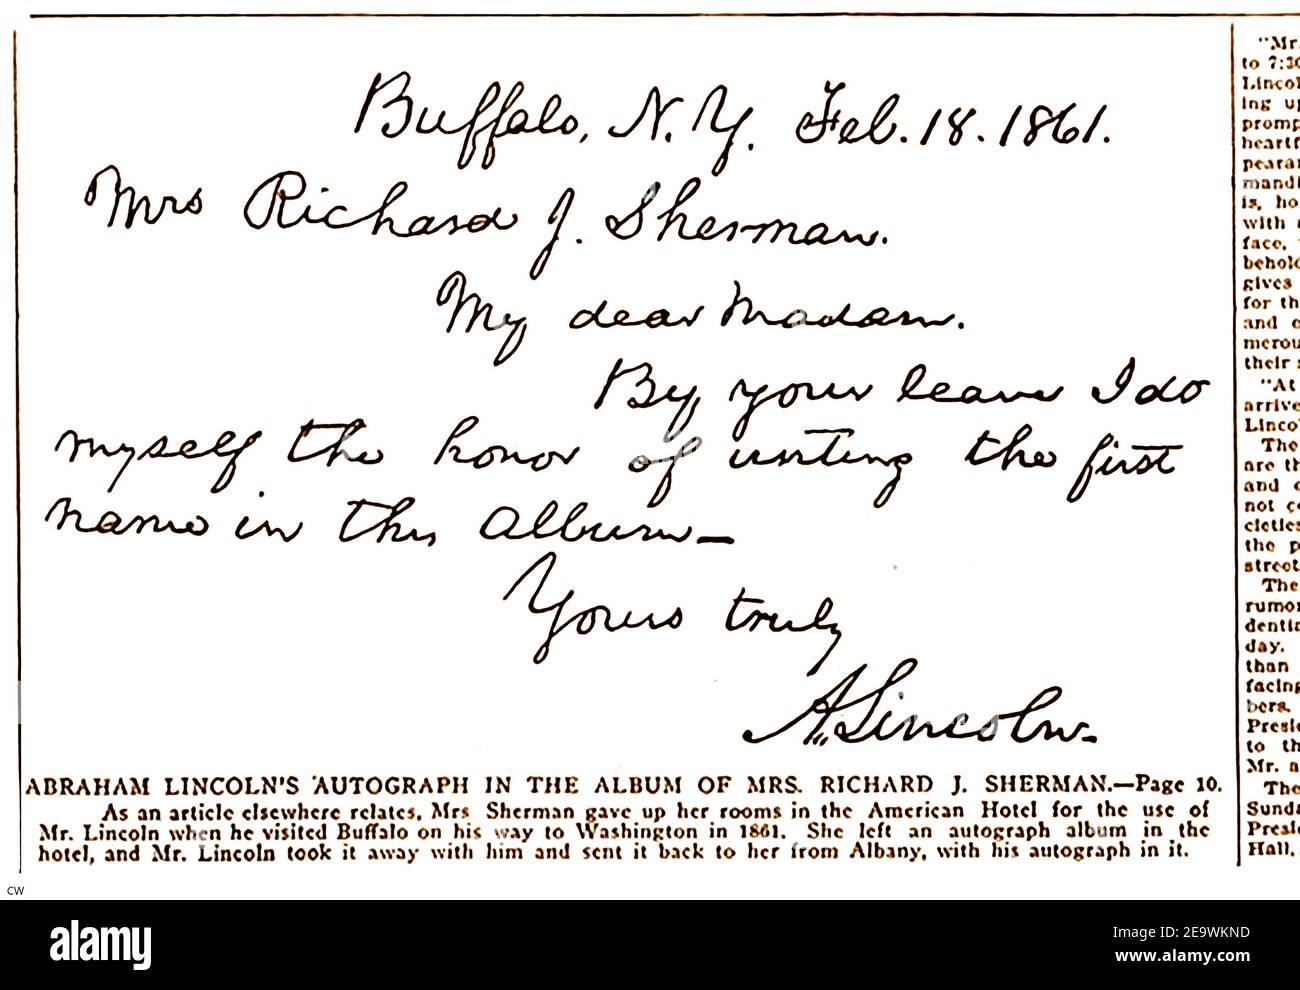 Buffalo, N. Y. Feb. 18. 1861.
Mrs Richard J. Sherman.
My dear Madam.
By your leave I do
myself the honor of writing the first
name in this album—
Yours truly
A. Lincoln.
ABRAHAM LINCOLN'S AUTOGRAPH IN THE ALBUM OF MRS. RICHARD J. SHERMAN.—Page 10.
As an article elsewhere relates, Mrs Sherman gave up her rooms in the American Hotel for the use of
Mr. Lincoln when he visited Buffalo on his way to Washington in 1861. She left an autograph album in the
hotel, and Mr. Lincoln took it away with him and sent it back to her from Albany, with his autograph in it.
"Mr.
to 7:30
Lincol
ing up
promp
heartf
pearan
mandi
is, ho
with
face,
behold
gives
for th
and
merou
their
"At
arrive
Lincol
The
are th
and
not co
cieties
the p
street
The
rumor
dentia
day.
than
facing
bers.
Presid
to th
Mr. a
The
Sunda
Presid
Hall.
CW
alamy
a
alamy
Image ID: 2E9WKND
www.alamy.com